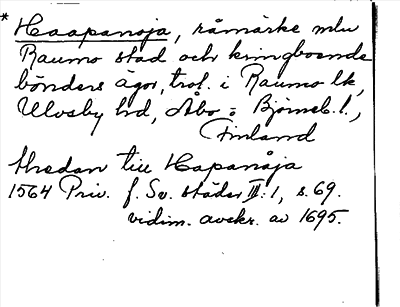 * Haapanoja, råmärke mlu
Raumo stad och kringboende
bönders ägor, trol. i Raumo lk,
Ulvsby hd, Åbo o. Björneb. l.,
Finland
thredan till Hapanåja
1564 Priv. f. Sv. städer III:1, s. 69.
vidim. avskr. av 1695.